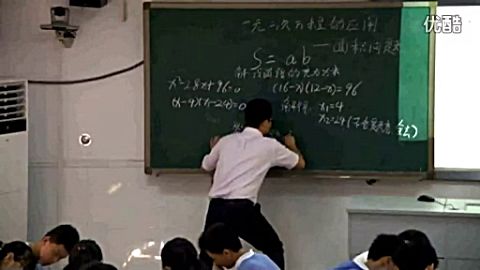 优酷
一元二次方程的应用
——面积问题
S=ab
解:设道路的宽为x米
(16-x)(12-x)=96
x²-28x+96=0
(x-4)(x-24)=0
解得 x₁=4
x₂=24(不合题意舍去)